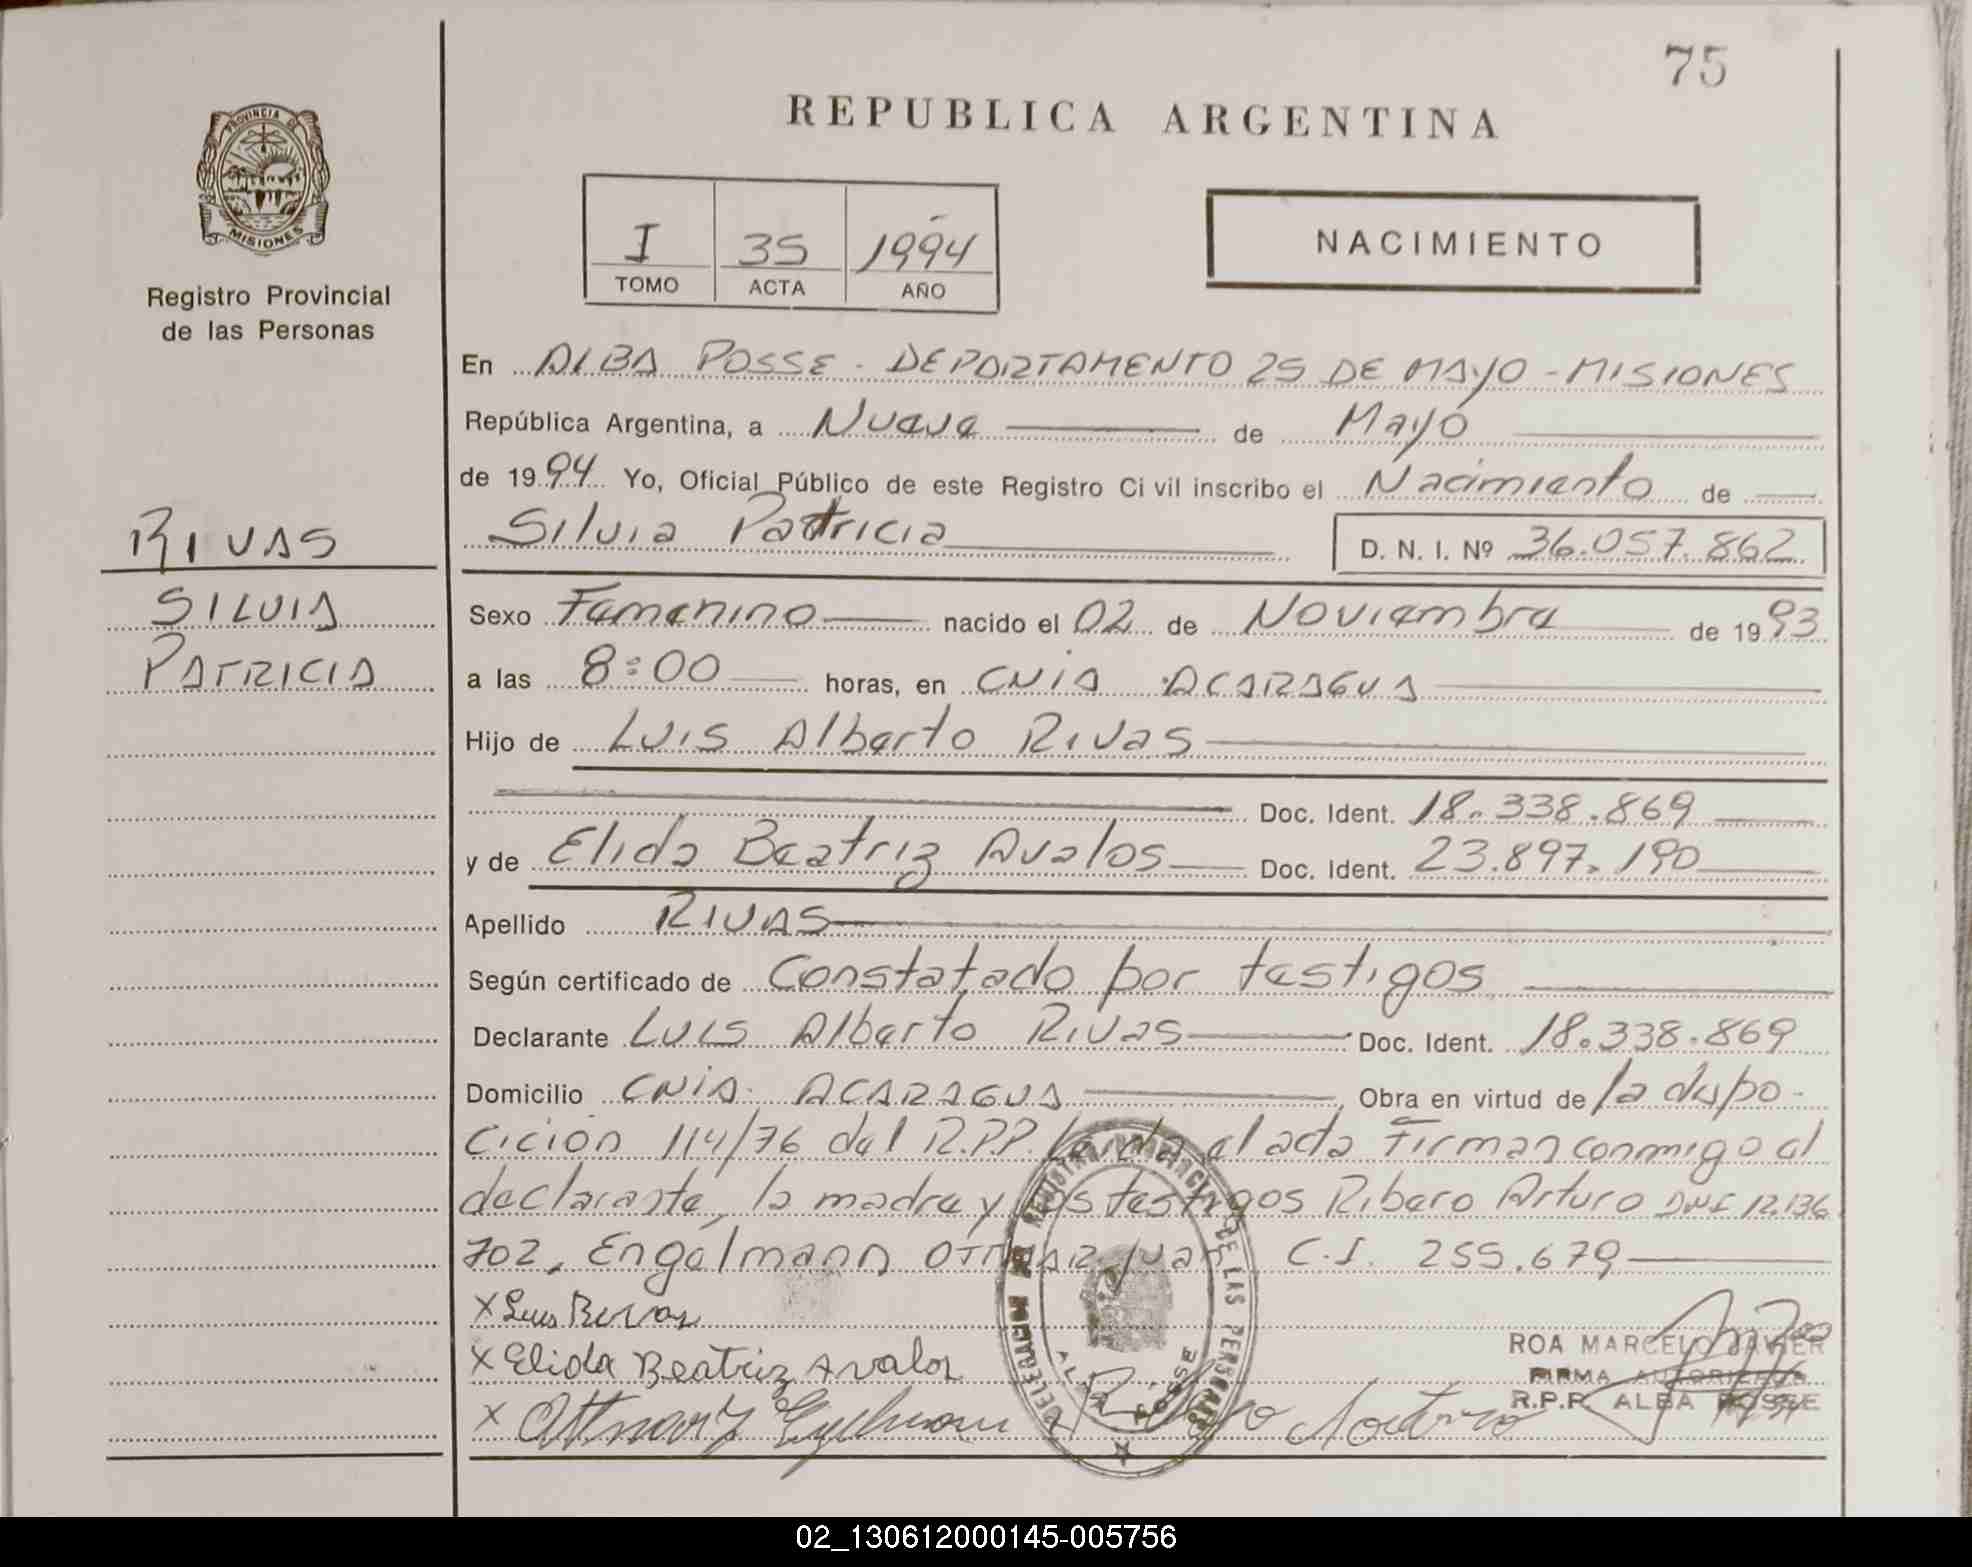 75
REPUBLICA ARGENTINA
PROVINCIA DE
MISIONES
Registro Provincial
de las Personas
I 35 1994
TOMO ACTA AÑO
NACIMIENTO
En ALBA POSSE - DEPARTAMENTO 25 DE MAYO - MISIONES
República Argentina, a Nueve de Mayo
de 1994 Yo, Oficial Público de este Registro Civil inscribo el Nacimiento de
RIVAS
Silvia Patricia D. N. I. Nº 36.057.862
SILVIA
Sexo Femenino nacido el 02 de Noviembre de 1993
PATRICIA
a las 8:00 horas, en CNIA ACARAGUA
Hijo de Luis Alberto Rivas
Doc. Ident. 18.338.869
y de Elida Beatriz Avalos Doc. Ident. 23.897.190
Apellido RIVAS
Según certificado de Constatado por testigos
Declarante Luis Alberto Rivas Doc. Ident. 18.338.869
Domicilio CNIA. ACARAGUA, Obra en virtud de la dispo-
cición 114/76 del R.P.P. Leida el acta Firman conmigo el
declarante, la madre y los testigos Ribero Arturo DNI 12.136
702, Engelmann OTTMAR Juan C.I. 255.679
x Luis Rivas
x Elida Beatriz Avalos
x
REGISTRO PROVINCIAL DE LAS PERSONAS
DELEGACION
ALBA POSSE
ROA MARCELO JAVIER
FIRMA AUTORIZADA
R.P.P. ALBA POSSE
02_130612000145-005756